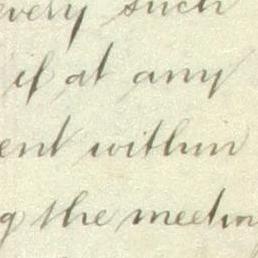 every such
if at any
ent within
g the meeting